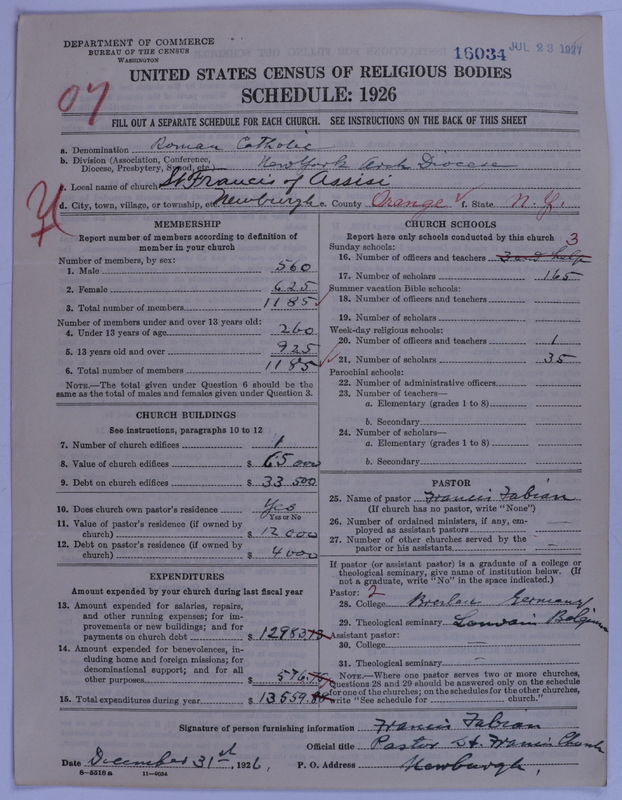 DEPARTMENT OF COMMERCE
BUREAU OF THE CENSUS
WASHINGTON
16034
JUL 23 1927
UNITED STATES CENSUS OF RELIGIOUS BODIES
SCHEDULE: 1926
07
FILL OUT A SEPARATE SCHEDULE FOR EACH CHURCH. SEE INSTRUCTIONS ON THE BACK OF THIS SHEET
a. Denomination Roman Catholic
b. Division (Association, Conference, Diocese, Presbytery, Synod, etc.) New York Arch Diocese
c. Local name of church St Francis of Assisi
d. City, town, village, or township, etc. Newburgh e. County Orange f. State N. Y.
MEMBERSHIP
Report number of members according to definition of member in your church
Number of members, by sex:
1. Male 560
2. Female 625
3. Total number of members 1185
Number of members under and over 13 years old:
4. Under 13 years of age 260
5. 13 years old and over 925
6. Total number of members 1185
NOTE.—The total given under Question 6 should be the same as the total of males and females given under Question 3.
CHURCH BUILDINGS
See instructions, paragraphs 10 to 12
7. Number of church edifices 1
8. Value of church edifices $ 65000
9. Debt on church edifices $ 33500
10. Does church own pastor's residence? Yes
Yes or No
11. Value of pastor's residence (if owned by church) $ 12000
12. Debt on pastor's residence (if owned by church) $ 4000
EXPENDITURES
Amount expended by your church during last fiscal year
13. Amount expended for salaries, repairs, and other running expenses; for improvements or new buildings; and for payments on church debt $ 12983
14. Amount expended for benevolences, including home and foreign missions; for denominational support; and for all other purposes $ 576
15. Total expenditures during year $ 13559
CHURCH SCHOOLS
Report here only schools conducted by this church
Sunday schools:
16. Number of officers and teachers 3 and help 3
17. Number of scholars 165
Summer vacation Bible schools:
18. Number of officers and teachers
19. Number of scholars
Week-day religious schools:
20. Number of officers and teachers 1
21. Number of scholars 35
Parochial schools:
22. Number of administrative officers
23. Number of teachers—
a. Elementary (grades 1 to 8)
b. Secondary
24. Number of scholars—
a. Elementary (grades 1 to 8)
b. Secondary
PASTOR
25. Name of pastor Francis Fabian
(If church has no pastor, write "None")
26. Number of ordained ministers, if any, employed as assistant pastors —
27. Number of other churches served by the pastor or his assistants —
If pastor (or assistant pastor) is a graduate of a college or theological seminary, give name of institution below. (If not a graduate, write "No" in the space indicated.)
Pastor: 2
28. College Breslau Germany
29. Theological seminary Louvain Belgium
Assistant pastor:
30. College —
31. Theological seminary —
NOTE.—Where one pastor serves two or more churches, Questions 28 and 29 should be answered only on the schedule for one of the churches; on the schedules for the other churches, write "See schedule for church."
Signature of person furnishing information Francis Fabian
Official title Pastor St. Francis Church
Date December 31st, 1926, P. O. Address Newburgh,
8—5518a 11—9054